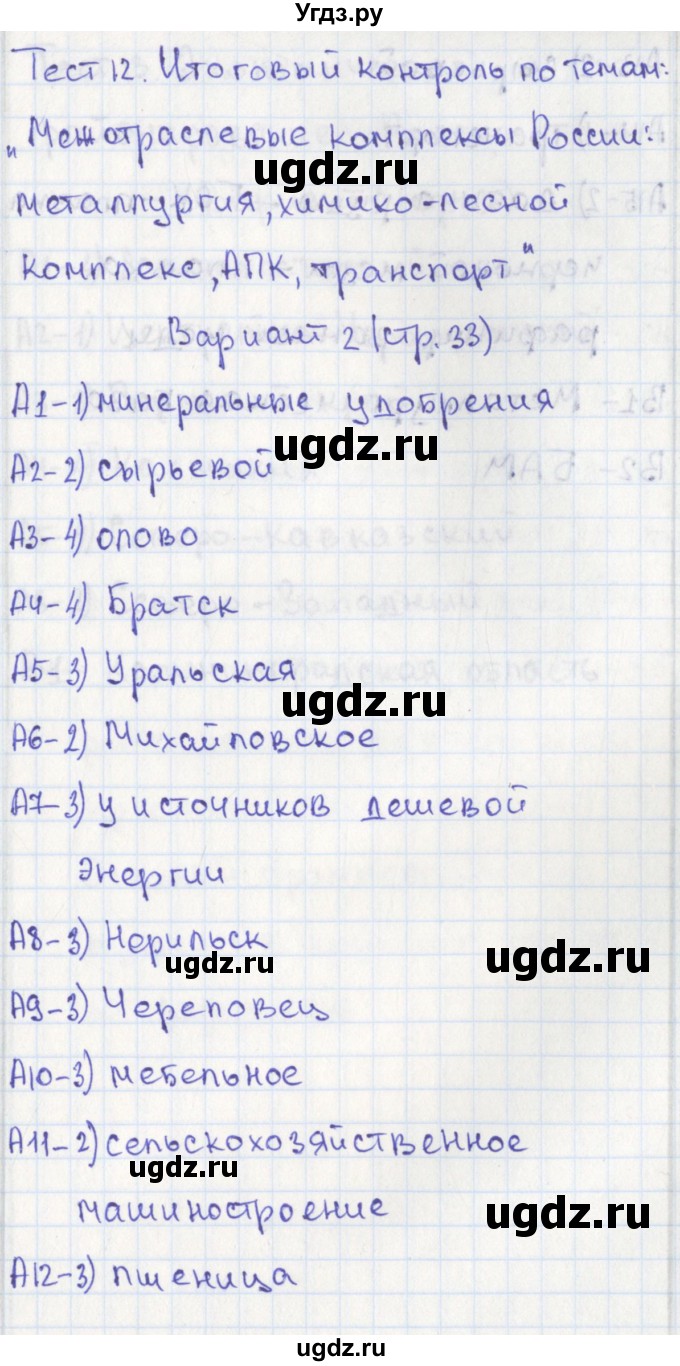 Угдз.ру
Тест 12. Итоговый контроль по темам:
"Межотраслевые комплексы России:
металлургия, химико-лесной
комплекс, АПК, транспорт"
Вариант 2 (стр. 33)
А1-1) минеральные удобрения
А2-2) сырьевой
А3-4) олово
А4-4) Братск
А5-3) Уральская
А6-2) Михайловское
А7-3) у источников дешевой
энергии
А8-3) Норильск
А9-3) Череповец
А10-3) мебельное
А11-2) сельскохозяйственное
машиностроение
А12-3) пшеница
ugdz.ru
ugdz.ru
ugdz.ru
ugdz.ru
ugdz.ru
ugdz.ru
ugdz.ru
ugdz.ru
ugdz.ru